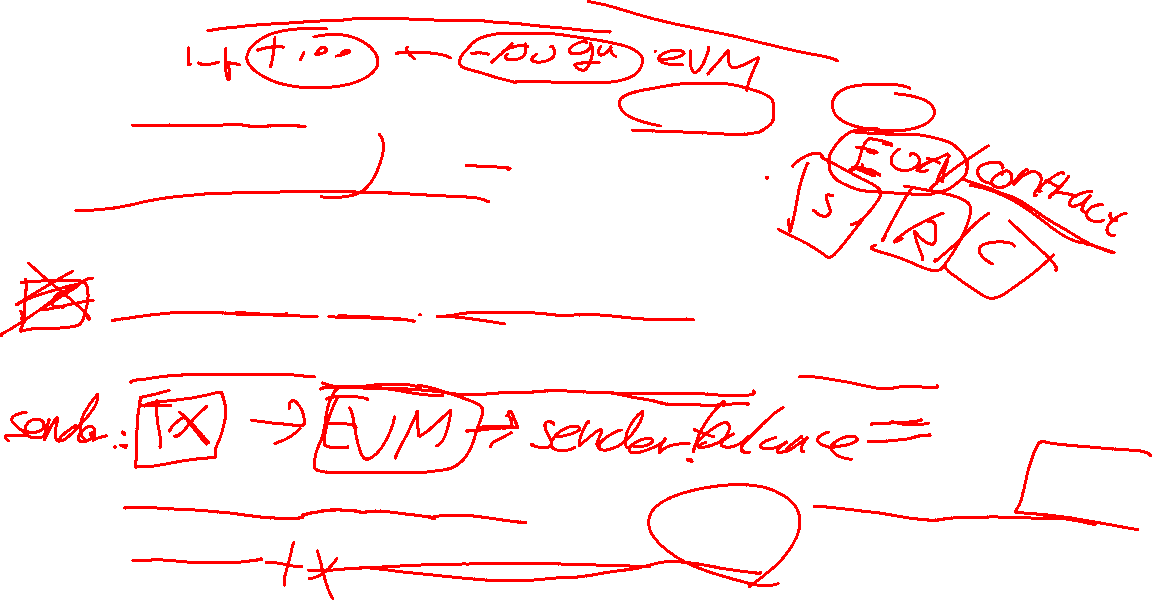 +100 ← -100 gu EVM
EVM contract
S R C
sender: TX → EVM → sender.balance =
tx